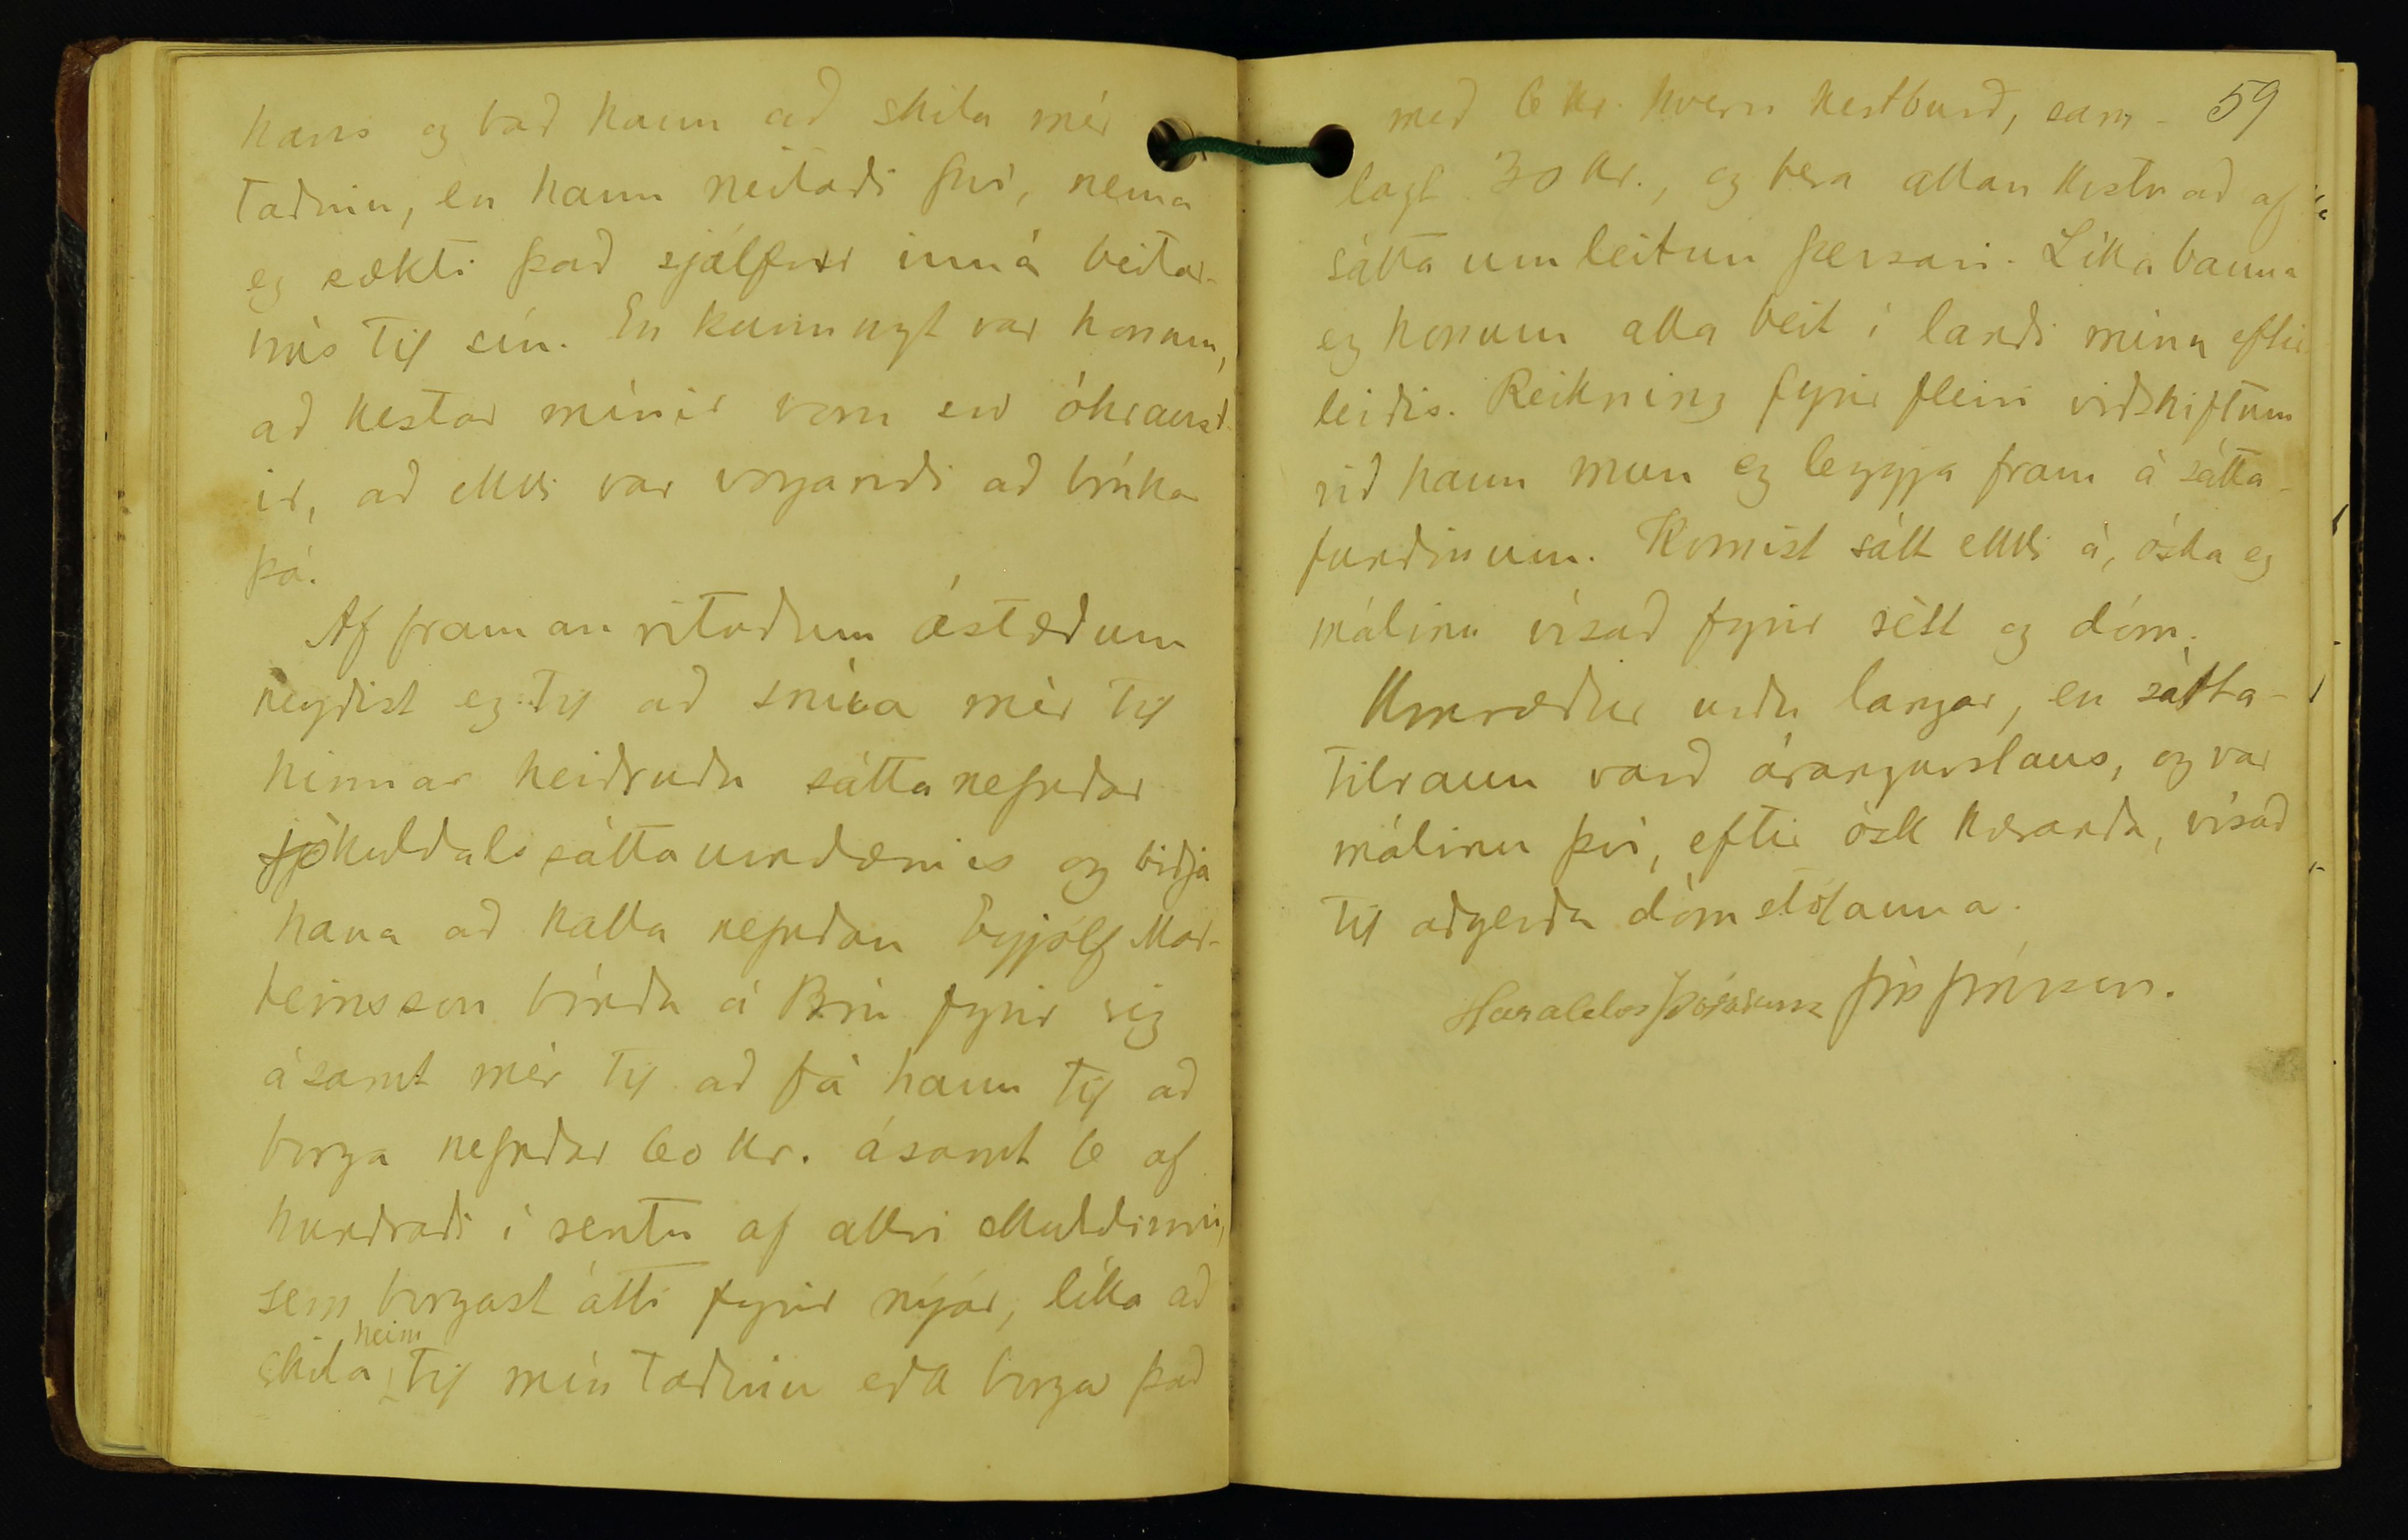 hans og bað hann að skila mér
taðinu, en hann neitaði því, nema
eg sækti það sjálfur inná beitar-
hús til sín. En kunnugt var honum,
að hestar mínir voru svo óhraust-
ir, að ekki var vogandi að brúka
þá.
Af framanrituðum ástæðum
neyðist eg til að snúa mér til
hinnar heiðruðu sáttanefndar
Jökuldals sáttaumdæmis og biðja
hana að kalla nefndan Eyjólf Mar-
teinsson bónda á Brú fyrir sig
ásamt mér til að fá hann til að
borga nefndar 60 kr. ásamt 6 af
hundraði í rentu af allri skuldinni,
sem borgast átti fyrir nýár, líka að
skila heim til mín taðinu eða borga það
59
með 6 kr. hvern hestburð, sam-
lagt 30 kr., og bera allan kostnað af
sáttaumleitun þessari. Líka banna
eg honum alla beit í landi mínu eftir-
leiðis. Reikning fyrir fleiri viðskiftum
við hann mun eg leggja fram á sátta-
fundinum. Komist sátt ekki á, óska eg
málinu vísað fyrir rétt og dóm.
Umræður urðu langar, en sátta-
tilraun varð árangurslaus, og var
málinu því, eftir ósk kæranda, vísað
til aðgerða dómstólanna.
Haraldur Þórarinss Jón Jónsson.